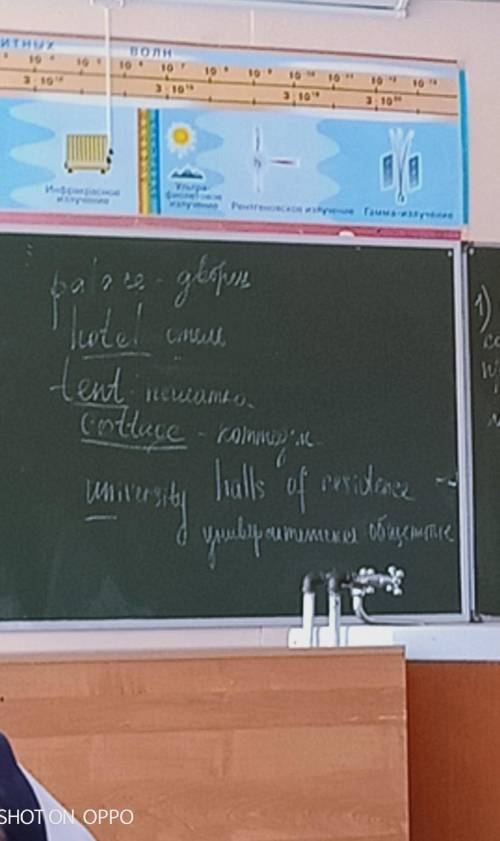 ИТНЫХ ВОЛН
10⁻⁴ 10⁻⁵ 10⁻⁶ 10⁻⁷ 10⁻⁸ 10⁻⁹ 10⁻¹⁰ 10⁻¹¹ 10⁻¹² 10⁻¹³
3·10¹² 3·10¹⁵ 3·10¹⁸ 3·10²⁰
Инфракрасное излучение
Ультрафиолетовое излучение
Рентгеновское излучение
Гамма-излучение
palace - дворец
hotel отель
tent - палатка
cottage - коттедж
university halls of residence -
университетское общежитие
1)
SHOT ON OPPO